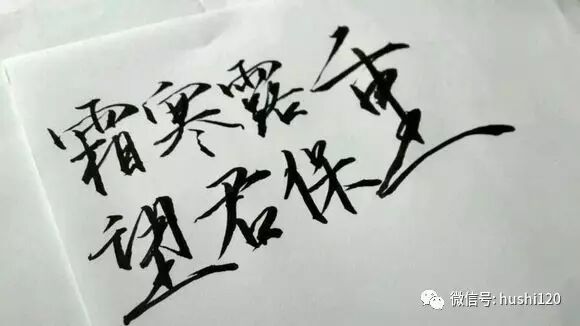 霜寒露重
望君保
微信号: hushi120